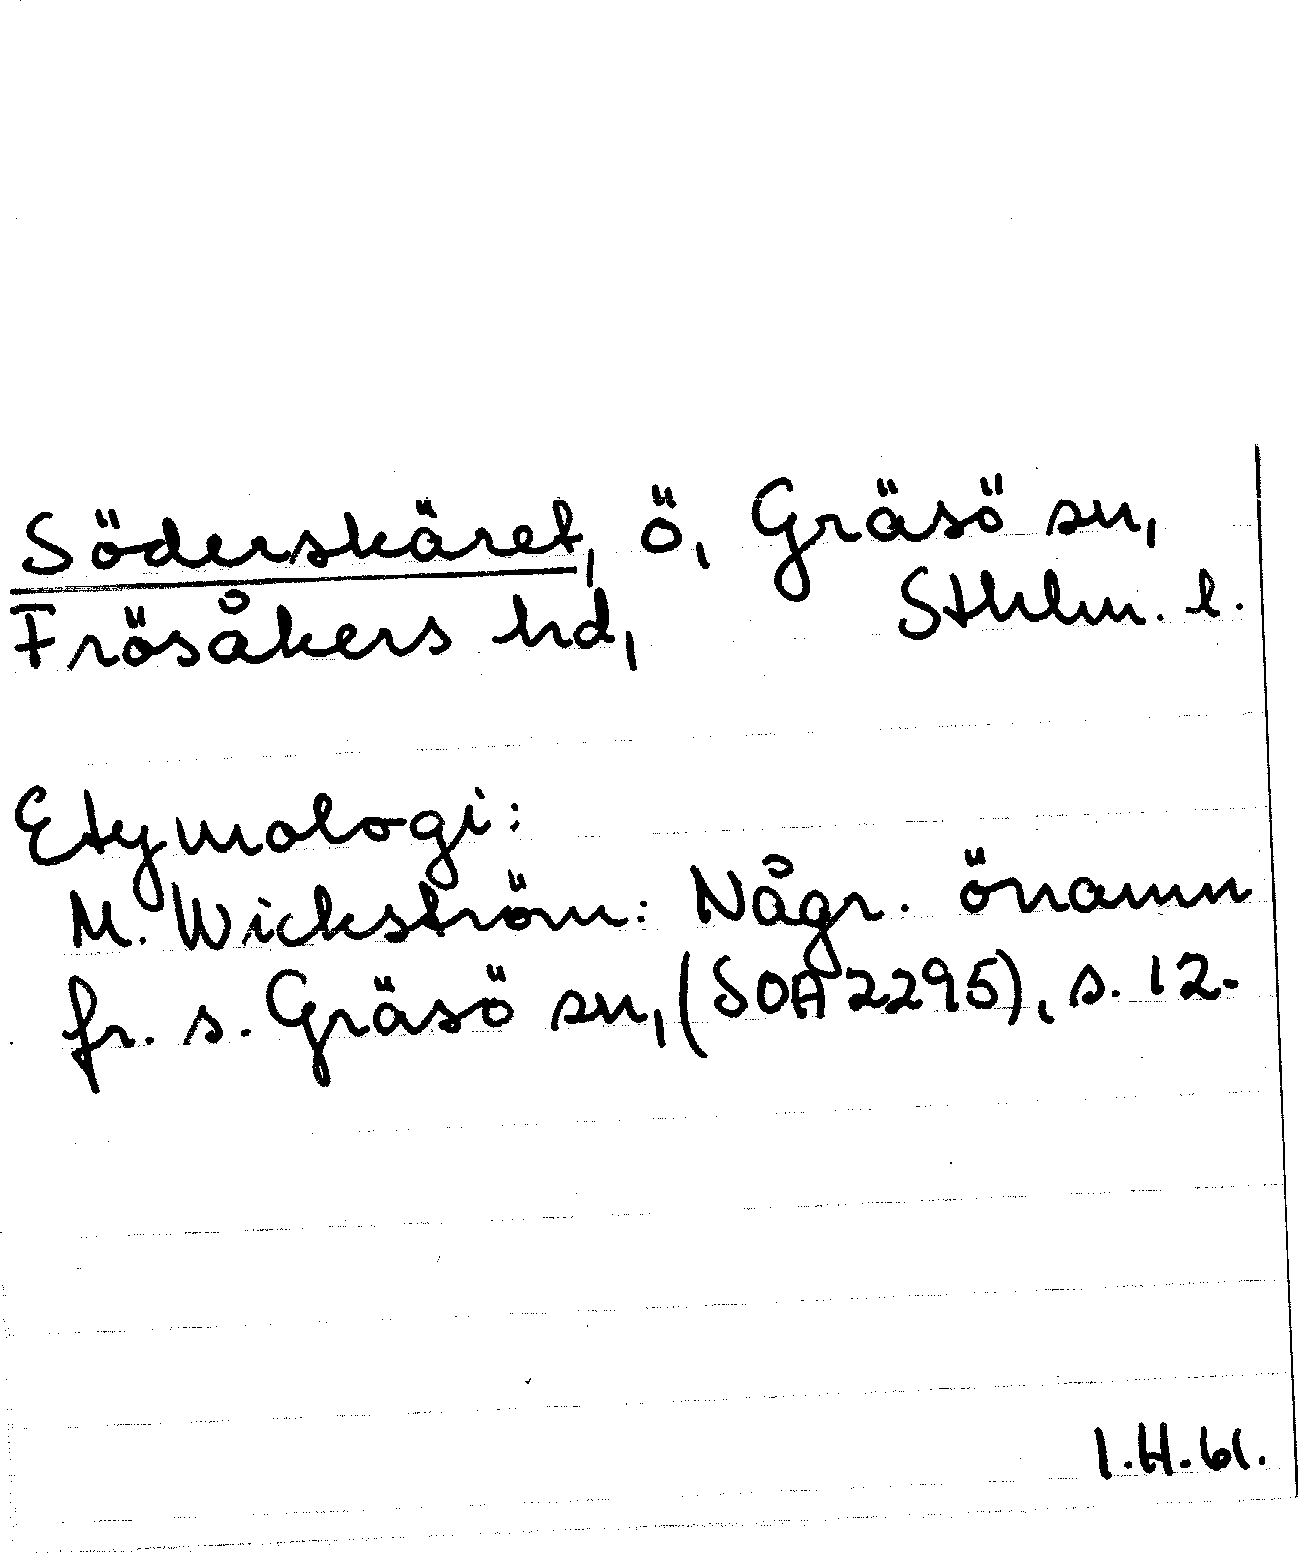 Söderskäret, ö, Gräsö sn,
Frösåkers hd, Sthlm. l.
Etymologi:
M. Wickström: Någr. önamn
fr. s. Gräsö sn, (SOA 2295), s. 12-
I.H.61.